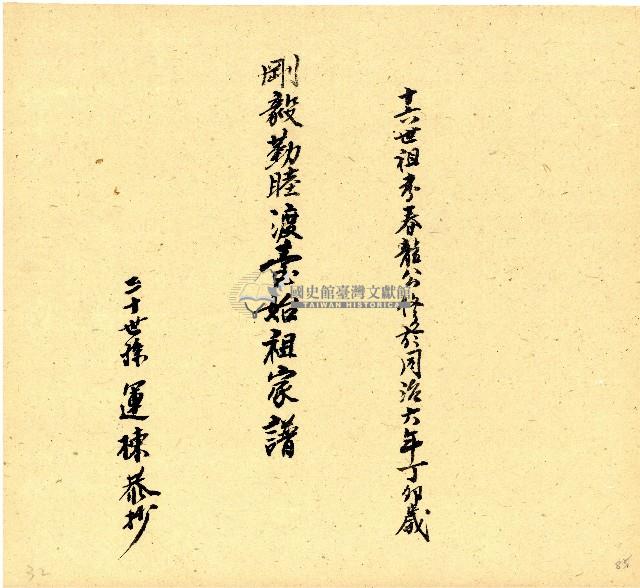 十六世祖李春龍公修於同治六年丁卯歲
剛毅勤睦渡臺始祖家譜
二十世孫 運棟 恭抄
國史館臺灣文獻館
TAIWAN HISTORICA
32
85